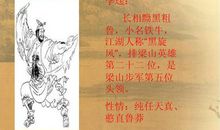 李逵：
长相黝黑粗
鲁，小名铁牛，
江湖人称“黑旋
风”，排梁山英雄
第二十二位，是
梁山步军第五位
头领。
性情：纯任天真、
憨直鲁莽